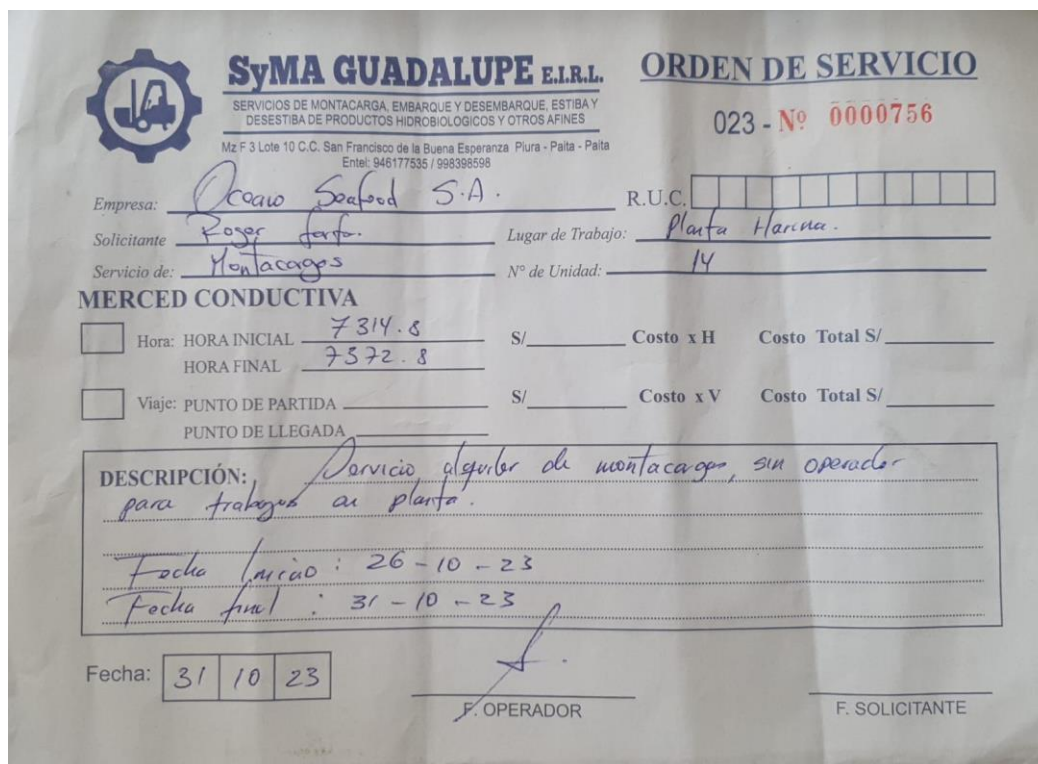 SyMA GUADALUPE E.I.R.L.
SERVICIOS DE MONTACARGA, EMBARQUE Y DESEMBARQUE, ESTIBA Y
DESESTIBA DE PRODUCTOS HIDROBIOLOGICOS Y OTROS AFINES
Mz F 3 Lote 10 C.C. San Francisco de la Buena Esperanza Piura - Paita - Paita
Entel: 946177535 / 998398598
ORDEN DE SERVICIO
023 - Nº 0000756
Empresa: Oceano Seafood S.A.
R.U.C.
Solicitante Roger
Lugar de Trabajo: Planta Harina.
Servicio de: Montacagos
Nº de Unidad: 14
MERCED CONDUCTIVA
Hora: HORA INICIAL 7314.8 S/ Costo x H Costo Total S/
HORA FINAL 7372.8
Viaje: PUNTO DE PARTIDA S/ Costo x V Costo Total S/
PUNTO DE LLEGADA
DESCRIPCIÓN: Servicio alquiler de montacargas, sin operador
para trabajos en planta.
Fecha Inicio : 26-10-23
Fecha final : 31-10-23
Fecha: 31 10 23
F. OPERADOR
F. SOLICITANTE